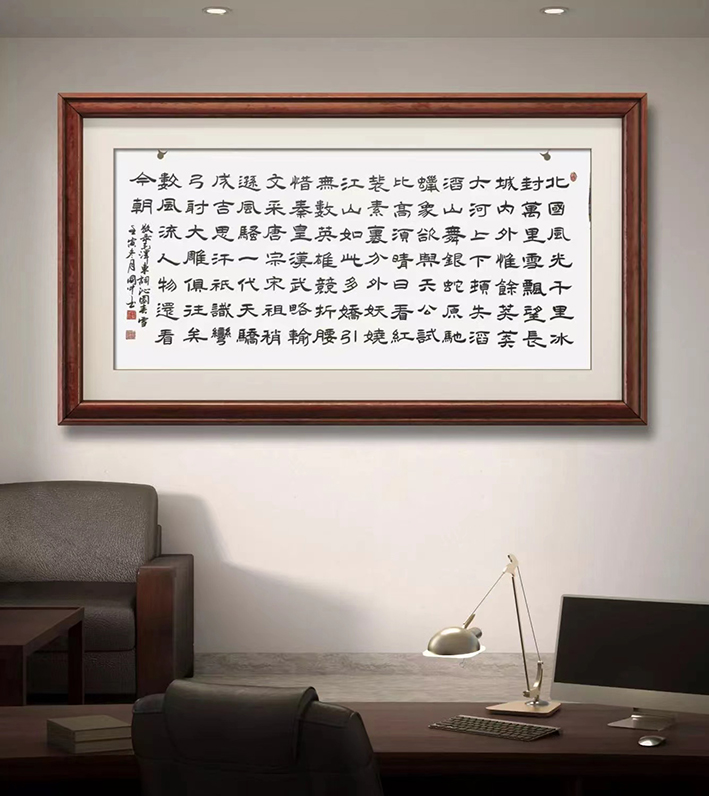 北國風光千里冰
封萬里雪飄望長
城內外惟餘莽莽
大河上下頓失滔
滔山舞銀蛇原馳
蠟象欲與天公試
比高須晴日看紅
裝素裹分外妖嬈
江山如此多嬌引
無數英雄競折腰
惜秦皇漢武略輸
文采唐宗宋祖稍
遜風騷一代天驕
成吉思汗祇識彎
弓射大雕俱往矣
數風流人物還看
今朝
敬書毛澤東詞沁園春雪
壬寅冬月